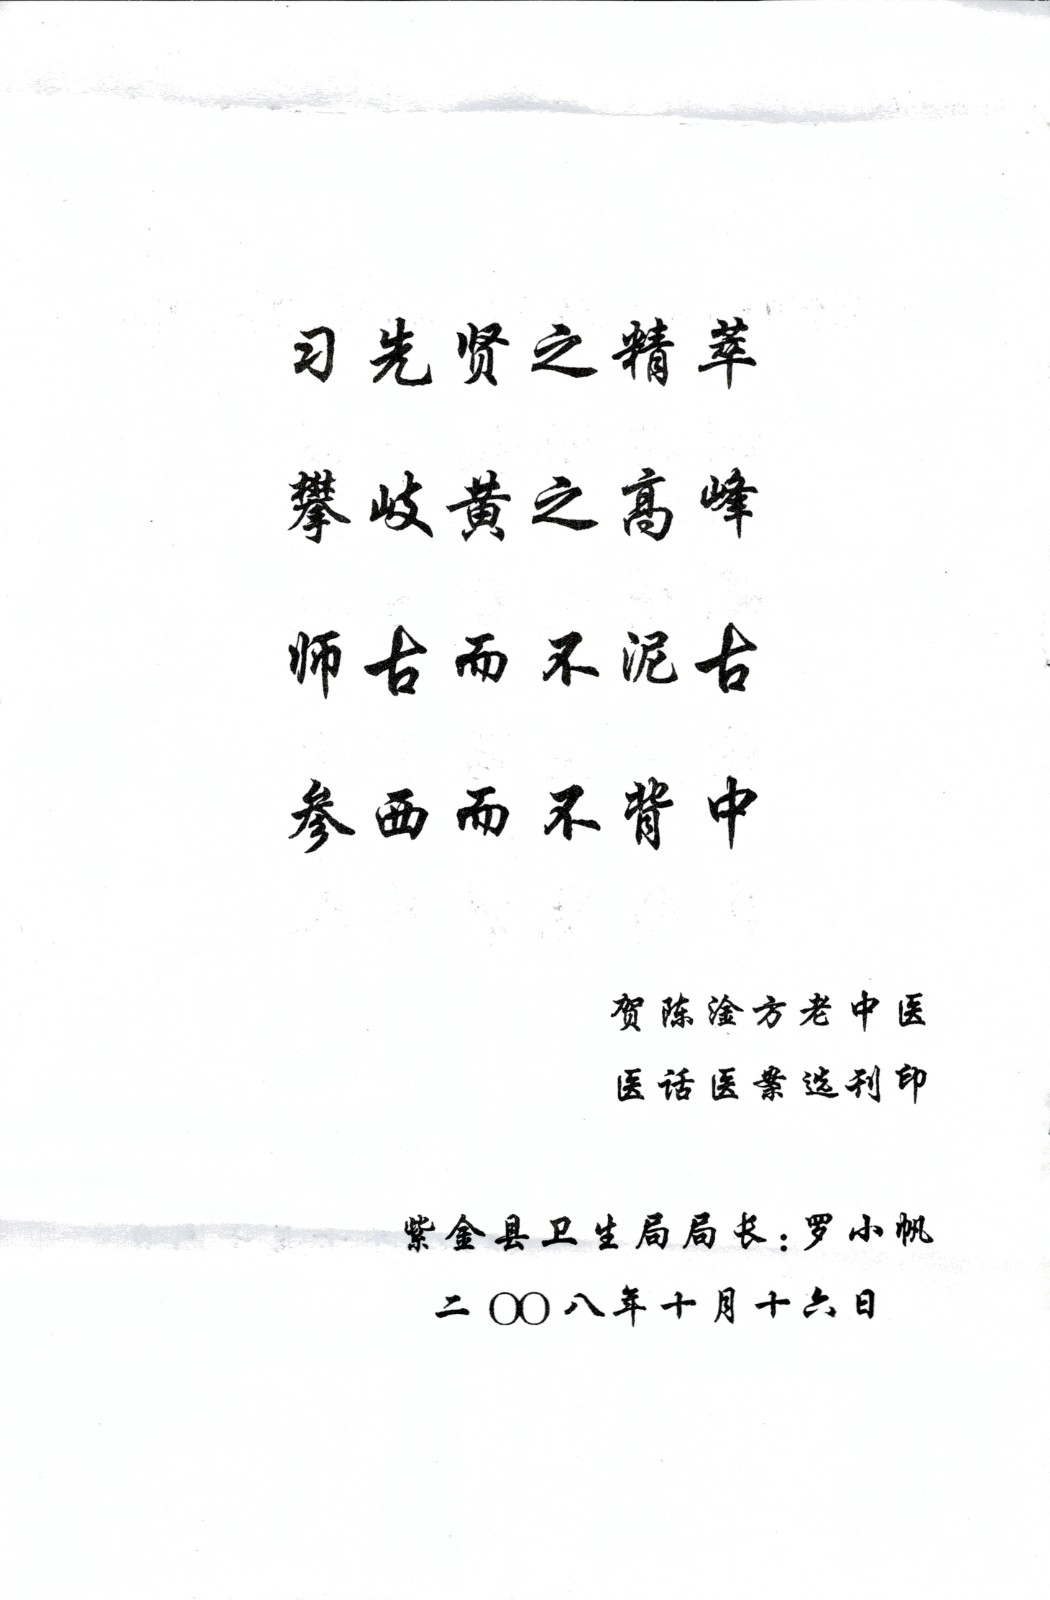 习先贤之精萃
攀岐黄之高峰
师古而不泥古
参西而不背中
贺陈淦方老中医
医话医案选刊印
紫金县卫生局局长:罗小帆
二〇〇八年十月十六日